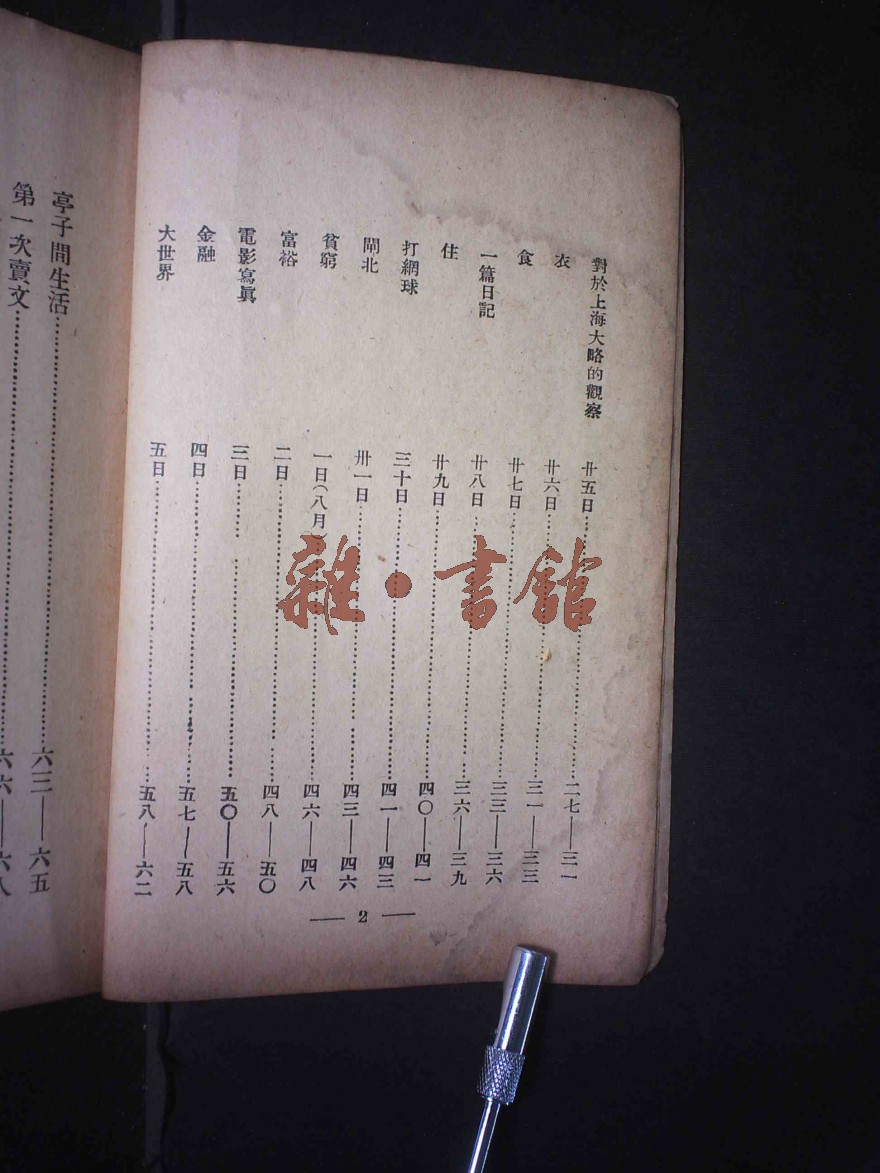 對於上海大略的觀察 廿五日……二七——三一
衣 廿六日……三一——三三
食 廿七日……三三——三六
一篇日記 廿八日……三六——三九
住 廿九日……四〇——四一
打網球 三十日……四一——四三
閘北 卅一日……四三——四六
貧窮 一日(八月)……四六——四八
富裕 二日……四八——五〇
電影寫眞 三日……五〇——五六
金融 四日……五七——五八
大世界 五日……五八——六二
— 2 —
亭子間生活……六三——六五
第一次賣文……六六——六八
雜·書館